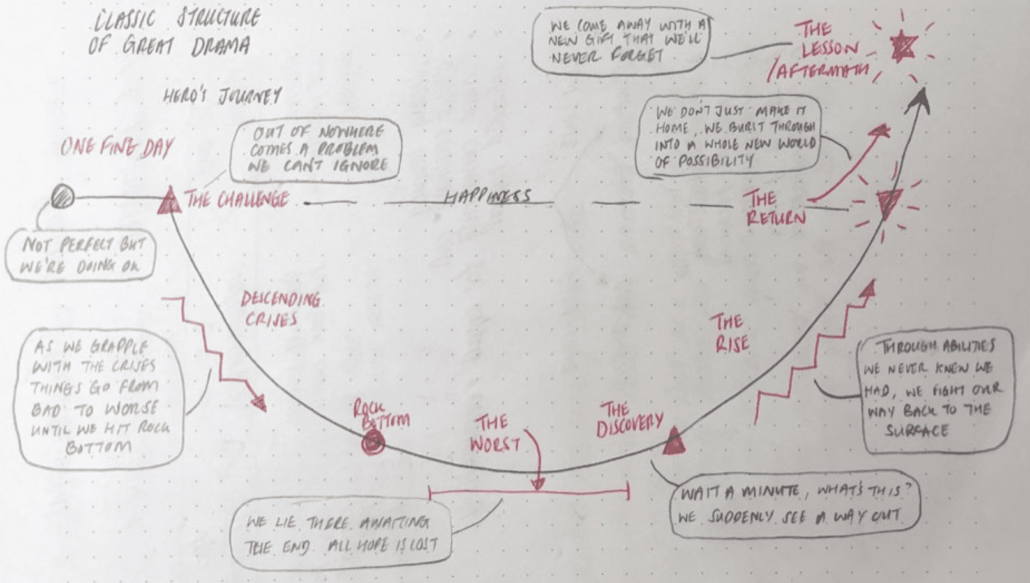 CLASSIC STRUCTURE
OF GREAT DRAMA
HERO'S JOURNEY
ONE FINE DAY
NOT PERFECT BUT
WE'RE DOING OK
OUT OF NOWHERE
COMES A PROBLEM
WE CAN'T IGNORE
THE CHALLENGE
HAPPINESS
DESCENDING
CRISES
AS WE GRAPPLE
WITH THE CRISES
THINGS GO FROM
BAD TO WORSE
UNTIL WE HIT ROCK
BOTTOM
ROCK
BOTTOM
THE
WORST
WE LIE THERE AWAITING
THE END. ALL HOPE IS LOST
THE
DISCOVERY
WAIT A MINUTE, WHAT'S THIS?
WE SUDDENLY SEE A WAY OUT
THE
RISE
THROUGH ABILITIES
WE NEVER KNEW WE
HAD, WE FIGHT OUR
WAY BACK TO THE
SURFACE
THE
RETURN
WE DON'T JUST MAKE IT
HOME, WE BURST THROUGH
INTO A WHOLE NEW WORLD
OF POSSIBILITY
THE
LESSON
/AFTERMATH
WE COME AWAY WITH A
NEW GIFT THAT WE'LL
NEVER FORGET